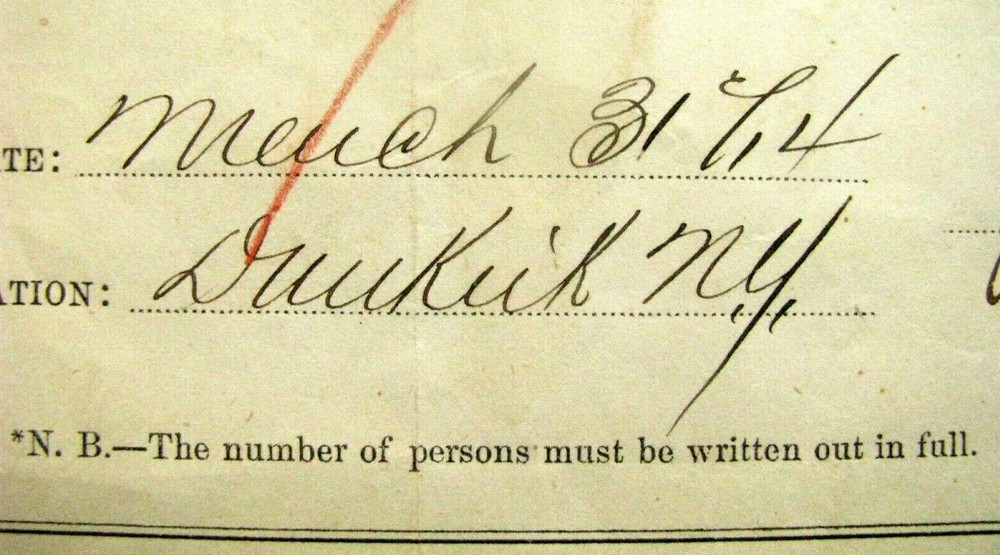 TE: March 31 74
ATION: Dunkirk NY
*N. B.—The number of persons must be written out in full.